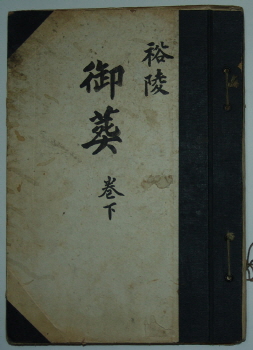 裕陵
御葬
卷下